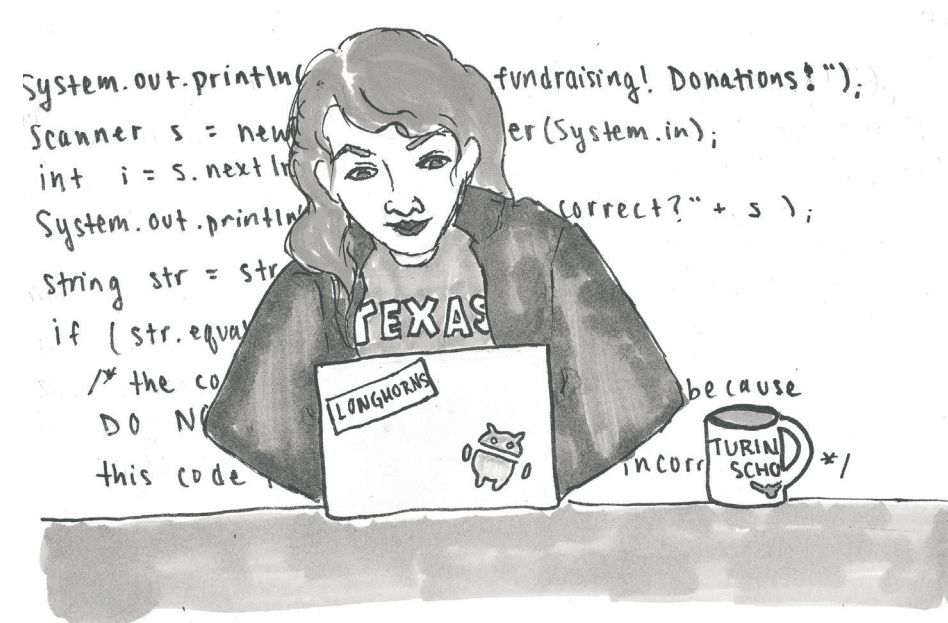 System.out.println( fundraising! Donations!");
Scanner s = new er(System.in);
int i = s.nextIn
System.out.println correct?" + s );
string str = str
if (str.equa
/* the co because
DO NO
this code incorr */
TEXAS
LONGHORNS
TURIN
SCHO